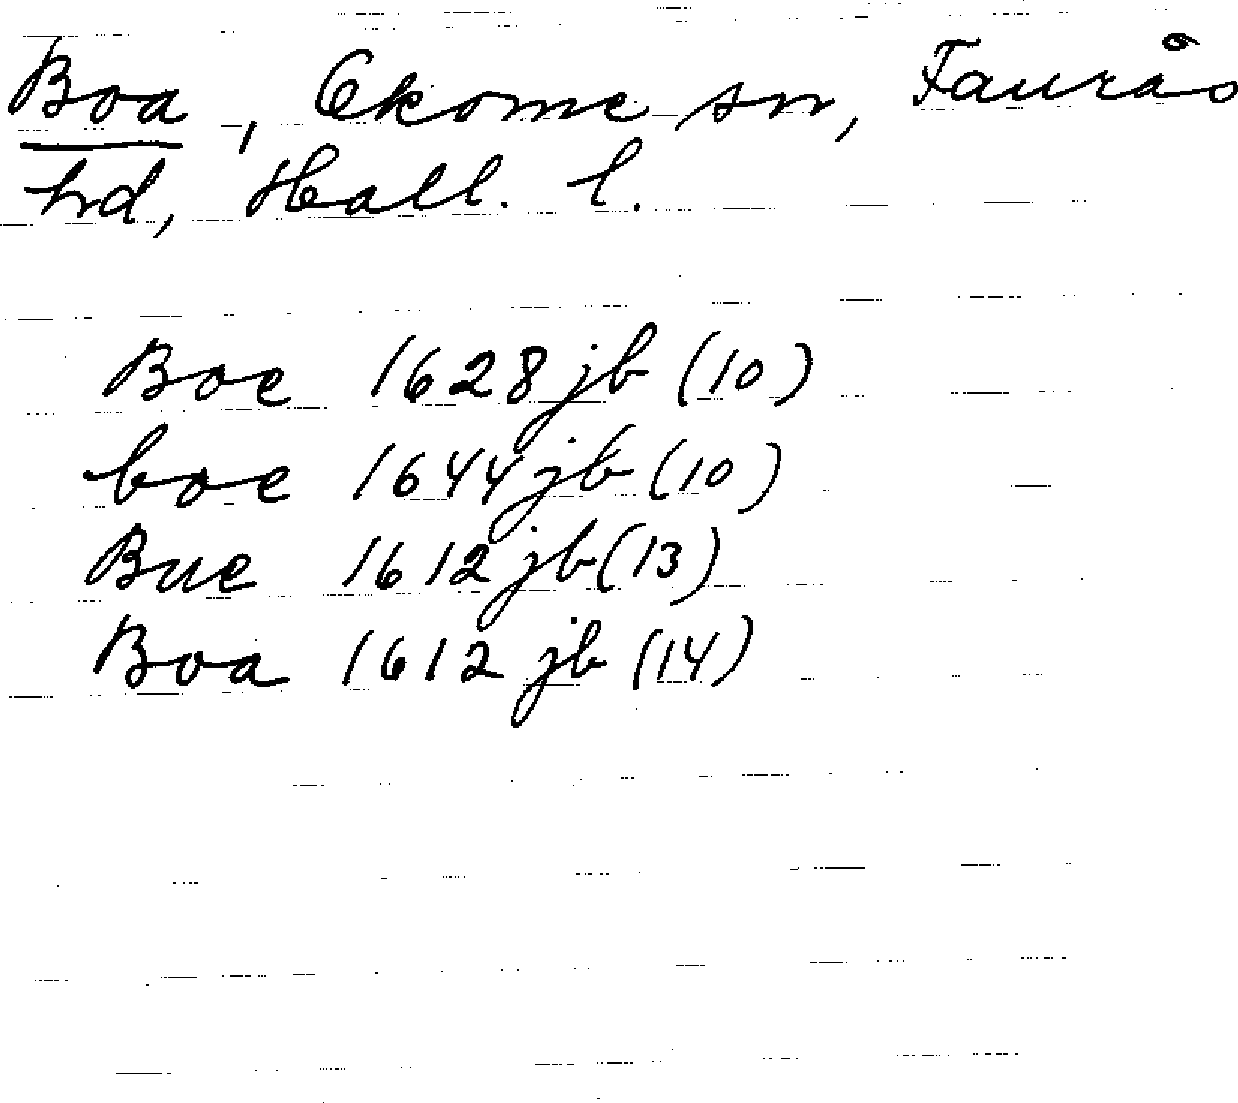 Boa, Okome sn, Faurås
hd, Hall. l.
Boe 1628 jb (10)
boe 1644 jb (10)
Bue 1612 jb (13)
Boa 1612 jb (14)